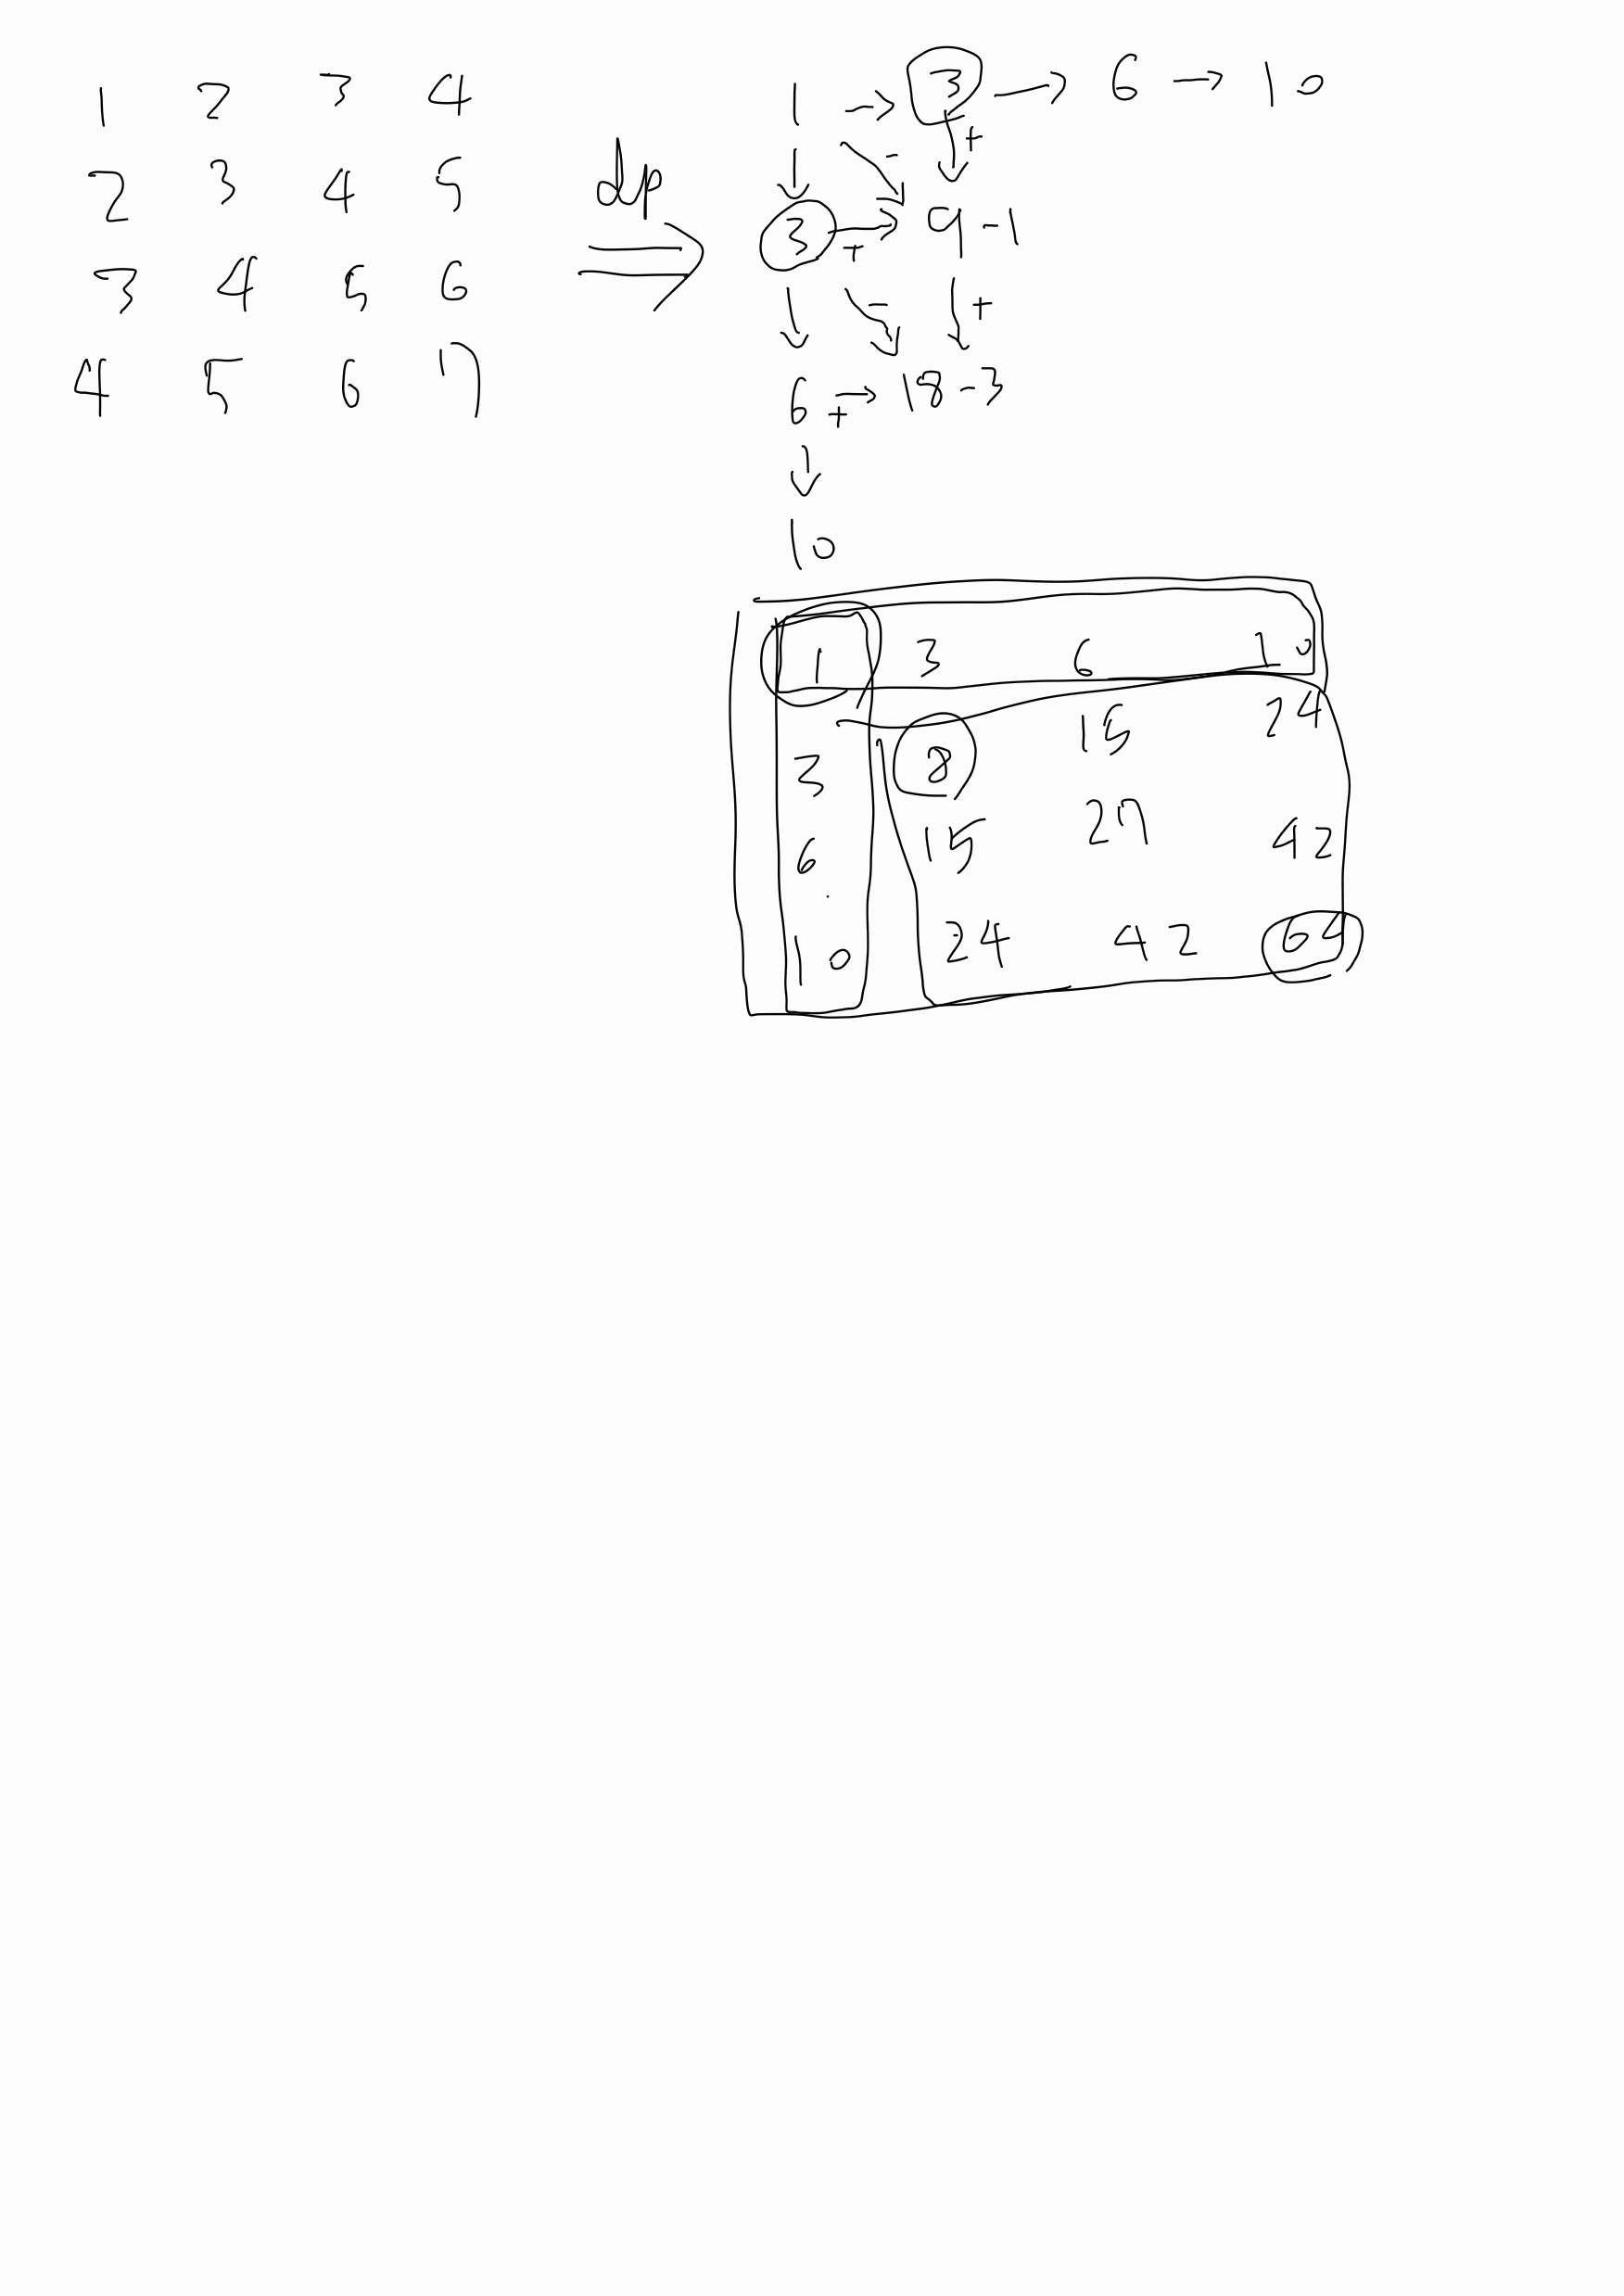 1 2 3 4
2 3 4 5
3 4 5 6
4 5 6 7
dp ⇒
1 → 3 → 6 → 10
↓ ↘ - ↓ +
3 → + 9 - 1
↓ ↘ - ↓ +
6 → + 18 - 3
↓
10
1 3 6 10
3 8 15 24
6 15 27 42
10 24 42 64